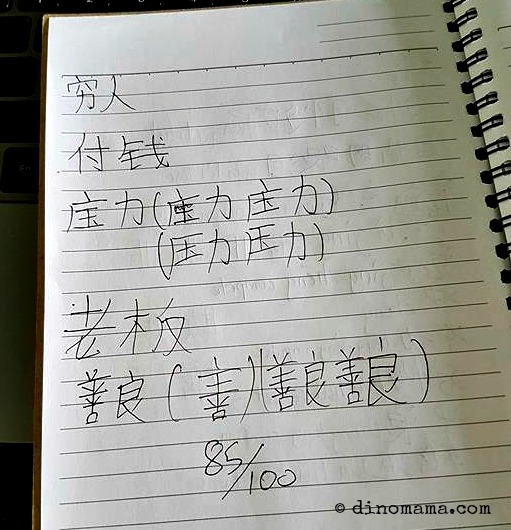 穷人
付钱
压力(压力 压力)
(压力 压力)
老板
善良(善)(善良善良)
85/100
© dinomama.com